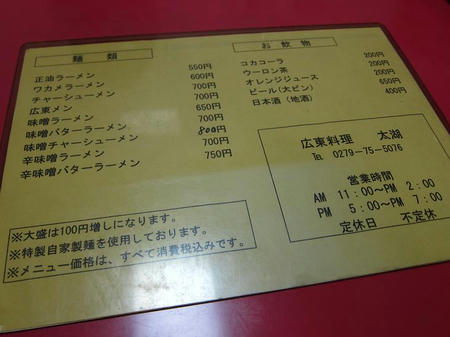 麺　類
正油ラーメン 550円
ワカメラーメン 600円
チャーシューメン 700円
広東メン 700円
味噌ラーメン 650円
味噌バターラーメン 700円
味噌チャーシューメン 800円
辛味噌ラーメン 700円
辛味噌バターラーメン 750円
※大盛は100円増しになります。
※特製自家製麺を使用しております。
※メニュー価格は、すべて消費税込みです。
お飲物
コカコーラ 200円
ウーロン茶 200円
オレンジジュース 200円
ビール(大ビン) 650円
日本酒(地酒) 400円
広東料理　太湖
℡ 0279-75-5076
営業時間
AM 11:00~PM 2:00
PM 5:00~PM 7:00
定休日　不定休